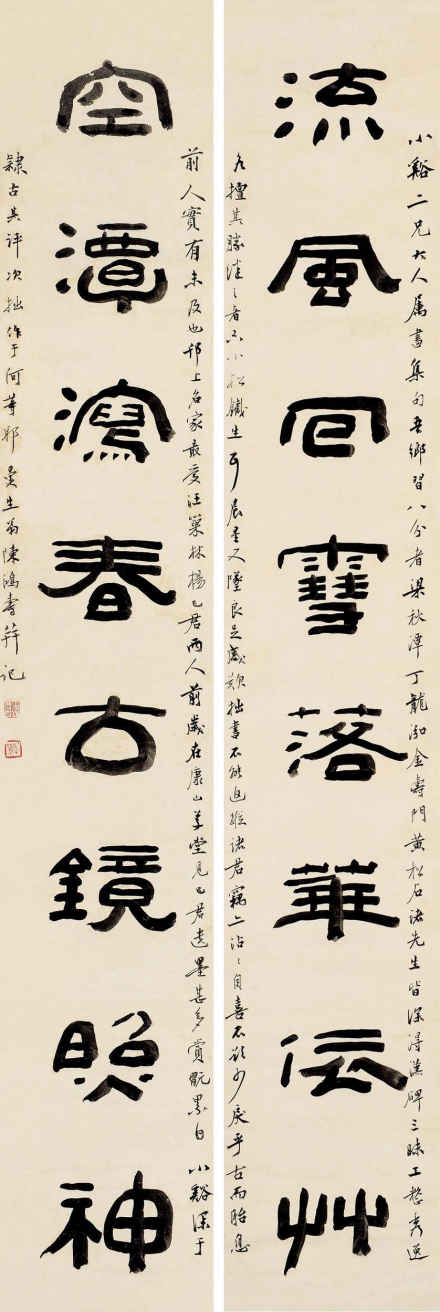 流風回雪落華依艸
小谿二兄大人屬書集句吾鄉習八分者梁秋潭丁龍泓金壽門黃松石諸先生皆深得漢碑三昧工整秀逸
各擅其勝繼之者小松鐵生耳晨星又墜良足感歎拙書不能追蹤諸君竊亦沾沾自喜不欲少戾乎古而胎息
空潭瀉春古鏡照神
前人實有未及也邗上名家最愛汪巢林楊已君兩人前歲在康山草堂見已君遺墨甚多賞翫累日小谿深于
隸古其評次拙作于何等耶曼生翁陳鴻壽并記